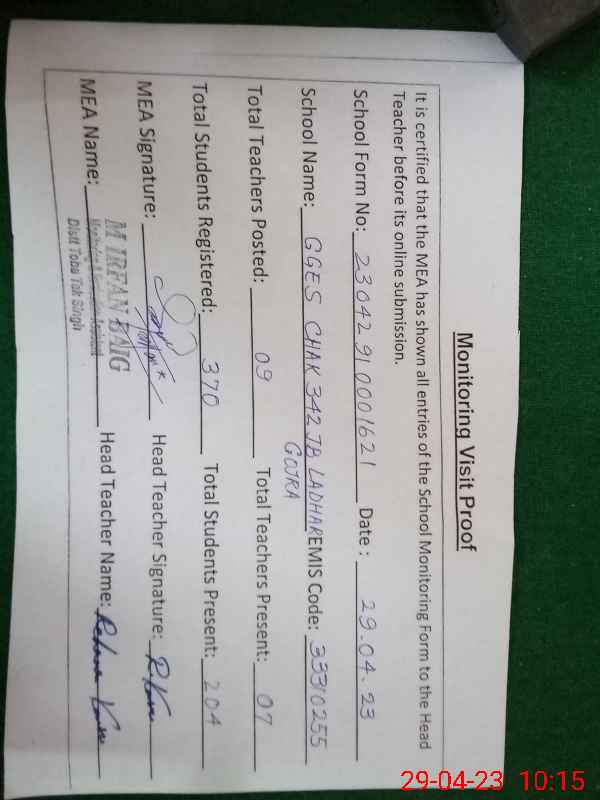 Monitoring Visit Proof
It is certified that the MEA has shown all entries of the School Monitoring Form to the Head
Teacher before its online submission.
School Form No: 23042910001621 Date : 29.04.23
School Name: GGES CHAK 342 JB LADHAR EMIS Code: 33310255
GOJRA
Total Teachers Posted: 09 Total Teachers Present: 07
Total Students Registered: 370 Total Students Present: 204
MEA Signature: Head Teacher Signature:
M IRFAN BAIG
MEA Name: Head Teacher Name:
Distt Toba Tek Singh
29-04-23 10:15